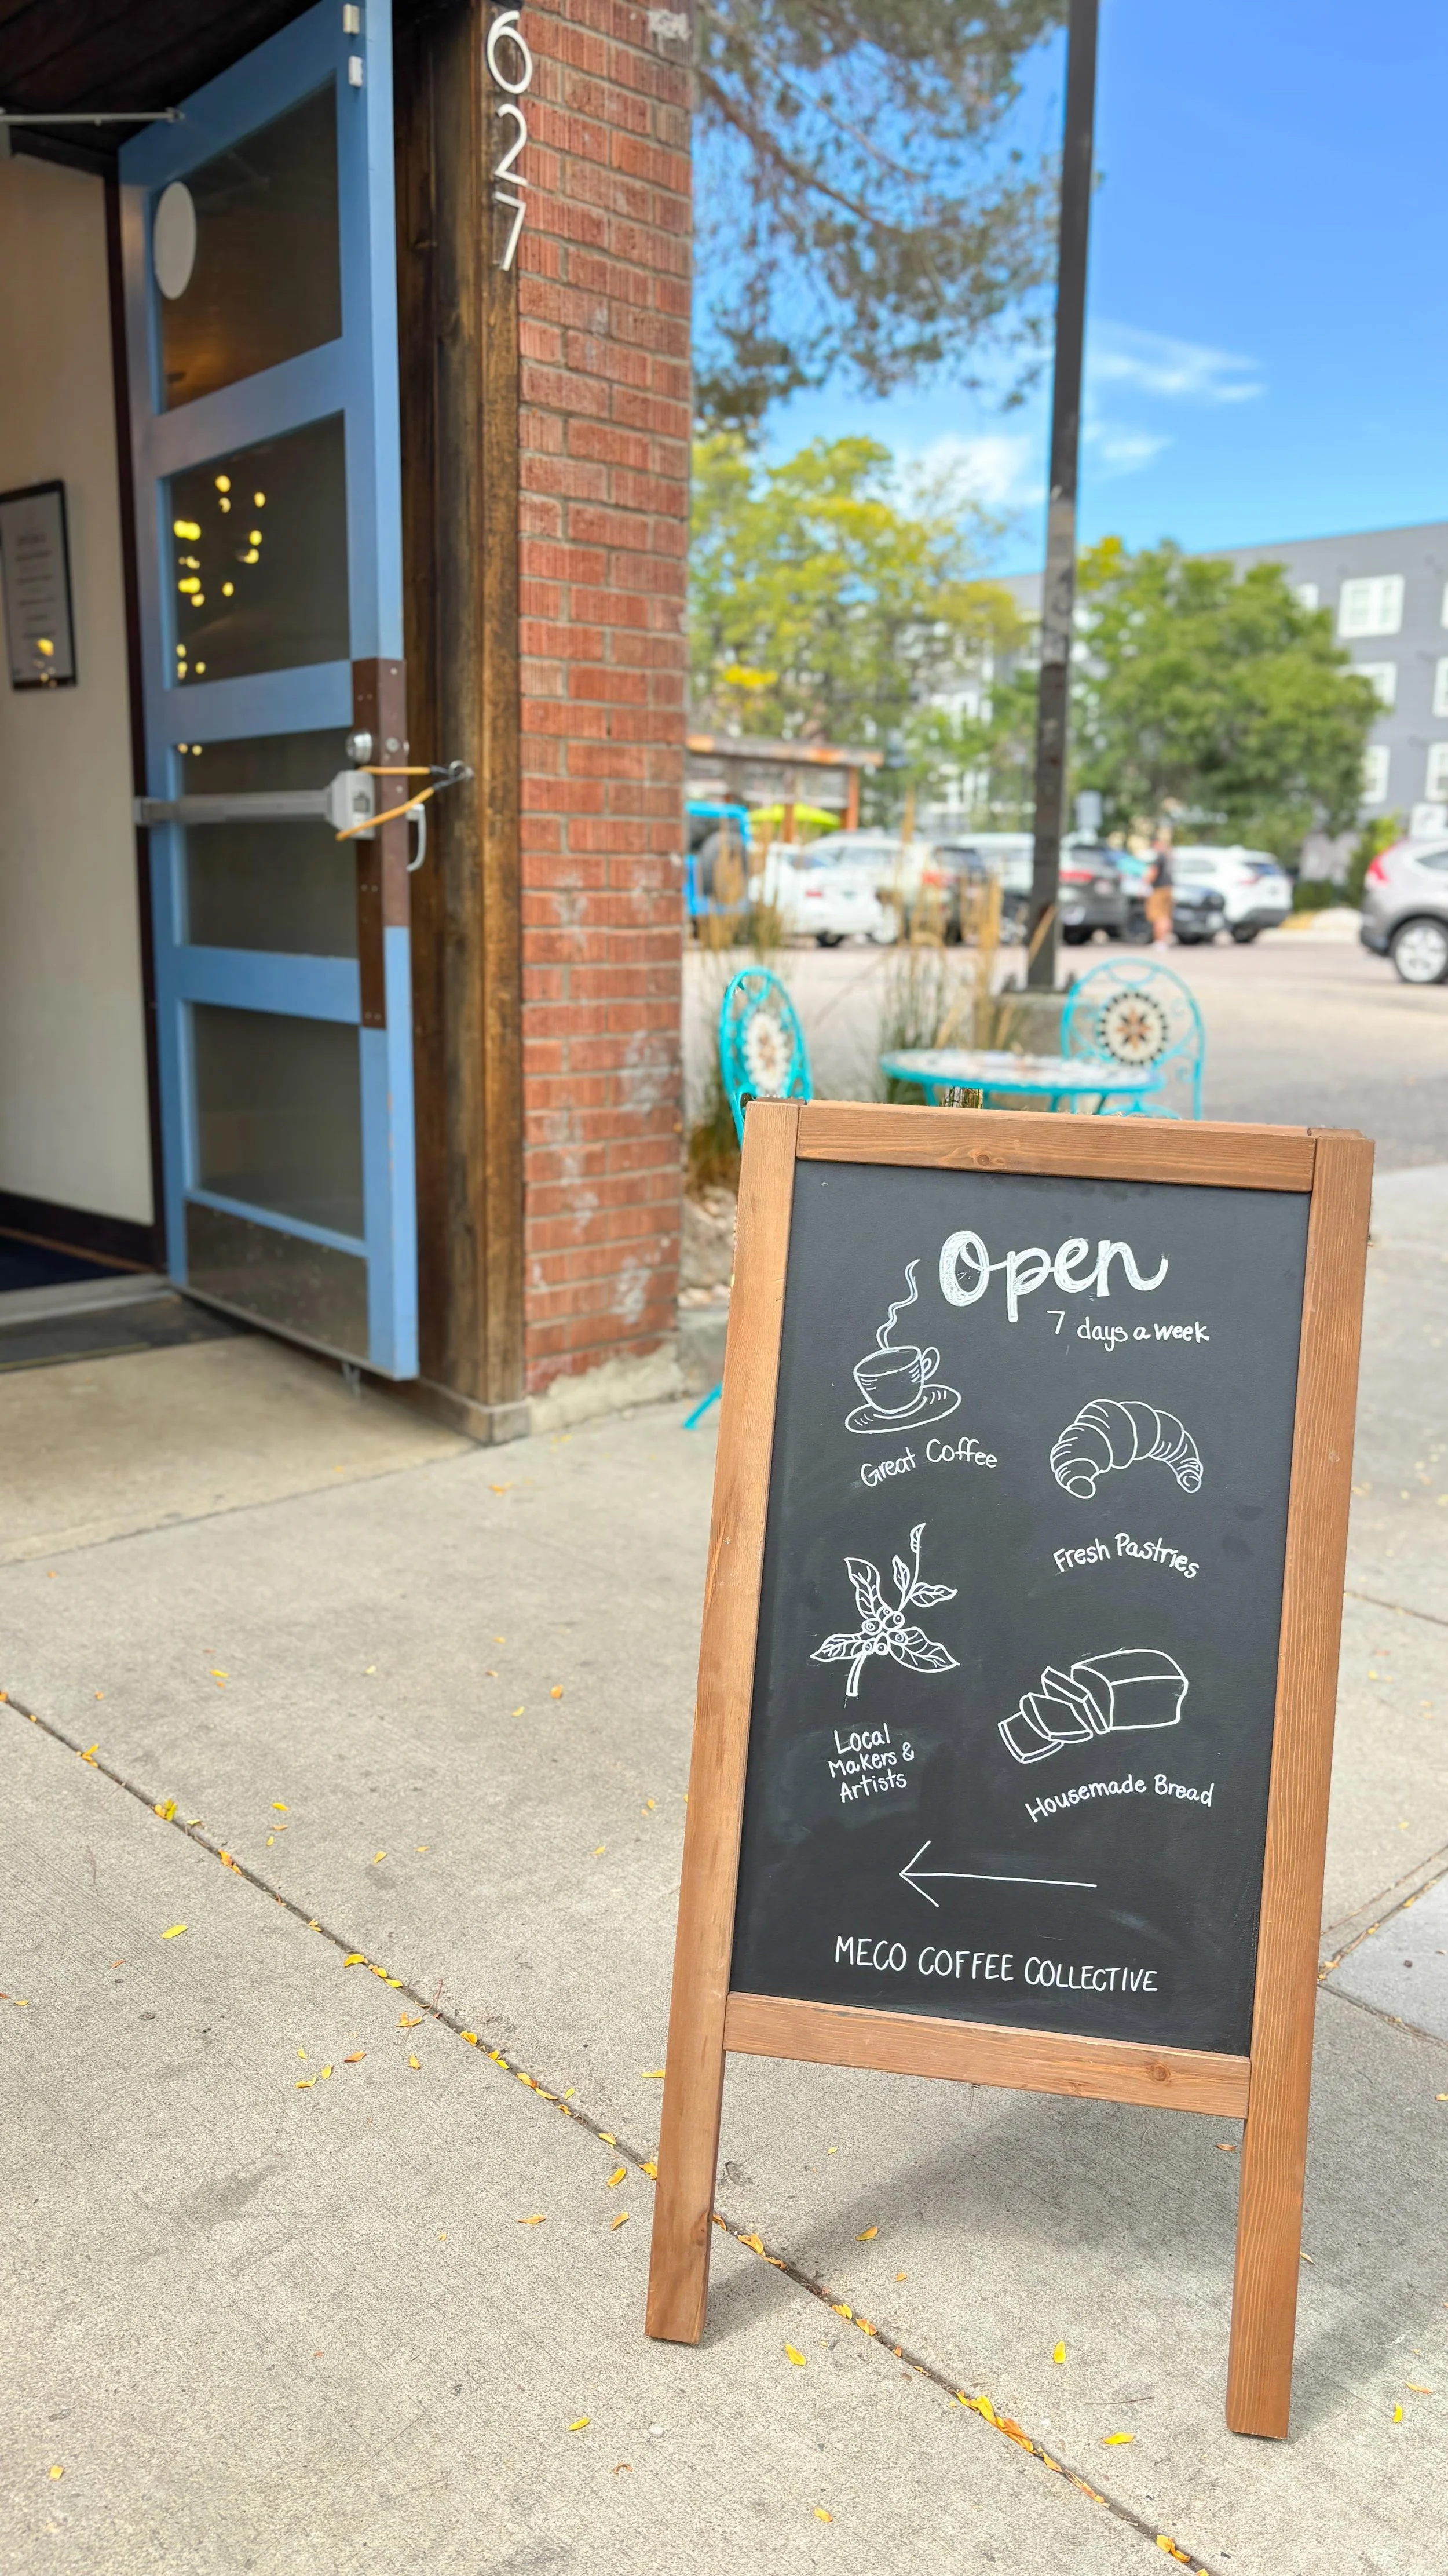 627
Open
7 days a week
Great Coffee
Fresh Pastries
Local
Makers &
Artists
Housemade Bread
MECO COFFEE COLLECTIVE